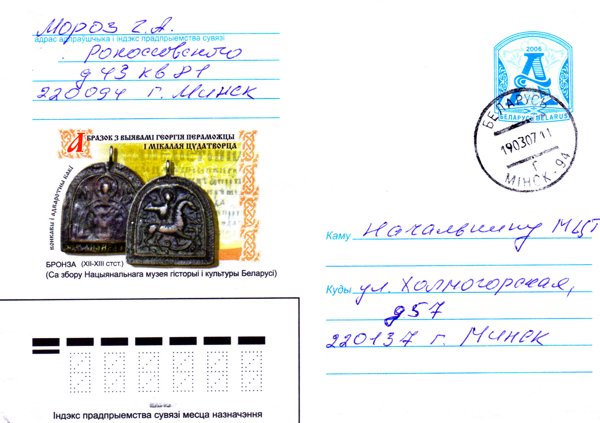 Мороз Г. А.
адрас адпраўшчыка і індэкс прадпрыемства сувязі
Рокоссовского
д 43 кв 81
220094 г. Минск
2006
А
БЕЛАРУСЬ BELARUS
БЕЛАРУСЬ
190307 11
Г
МІНСК-94
АБРАЗОК З ВЫЯВАМІ ГЕОРГІЯ ПЕРАМОЖЦЫ
І МІКАЛАЯ ЦУДАТВОРЦА
вонкавы і адваротны бакі
БРОНЗА (XII-XIII стст.)
(Са збору Нацыянальнага музея гісторыі і культуры Беларусі)
Каму Начальнику МЦТ
Куды ул. Холмогорская,
д57
220137 г. Минск
Індэкс прадпрыемства сувязі месца назначэння